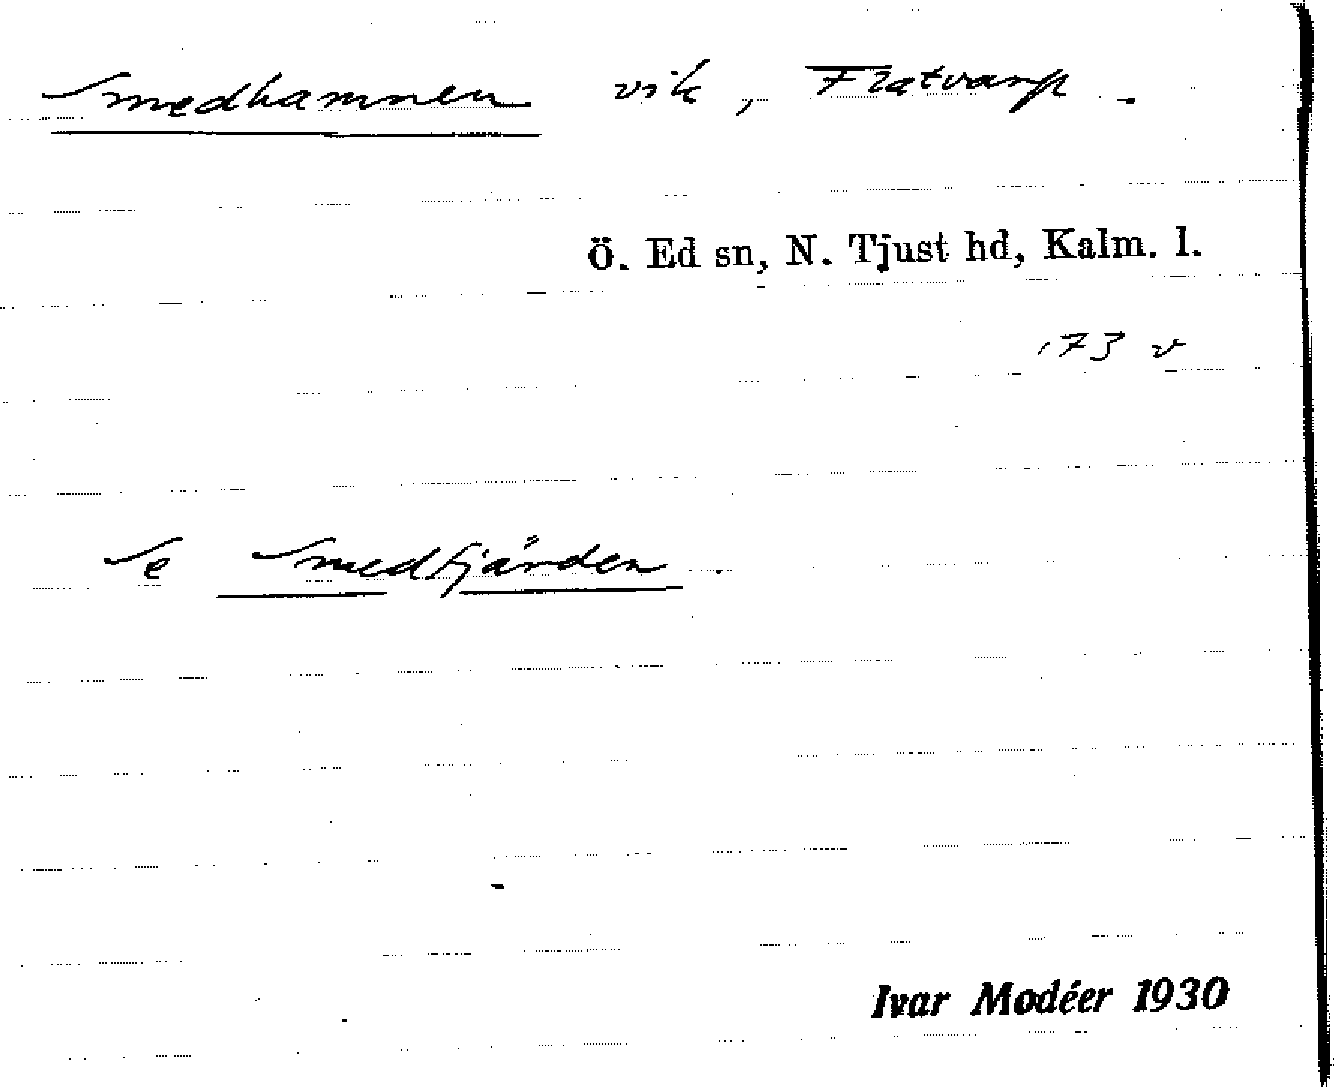 Smedhamnen vik, Flatvarp.
Ö. Ed sn, N. Tjust hd, Kalm. l.
173 v
Se Smedfjärden.
Ivar Modéer 1930